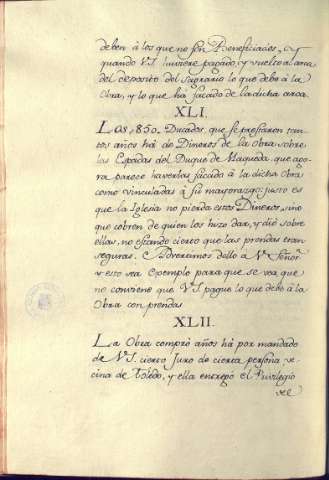 deben à los que no son Beneficiados, y
quando V.S. huviere pagado, y vuelto al arca
del deposito del Sagrario lo que debe à la
Obra, y lo que ha sacado de la dicha arca.
XLI.
Los 850. Ducados que se prestaron tan-
tos años hà de Dineros de la Obra sobre
las Espadas del Duque de Maqueda, que ago-
ra parece haverlas sacado à la dicha Obra
como vinculadas à su mayorazgo: justo es
que la Iglesia no pierda estos Dineros, sino
que cobren de quien los hizo dar, y diò sobre
ellas, no estando cierto que las prendas eran
seguras. Advertimos dello a V.ª Señor.ª
y esto sea exemplo para que se vea que
no conviene que V.S. pague lo que debe à la
Obra con prendas
XLII.
La Obra comprò años hà por mandado
de V.S. cierto Juro de cierta persona ve-
cina de Toledo, y ella entregò el Privilegio
del